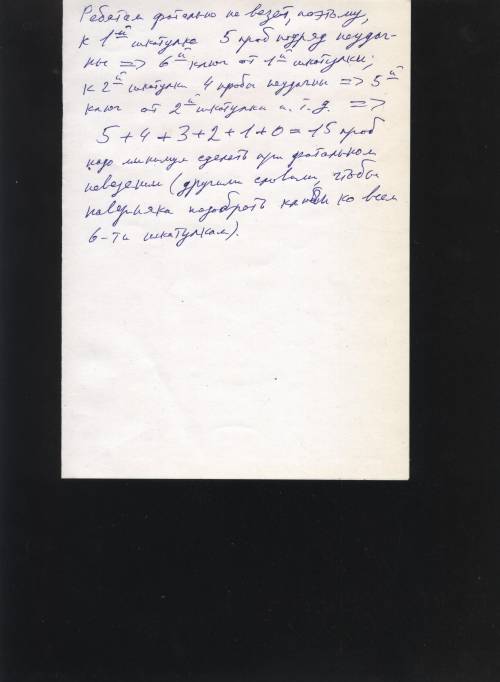 Ребятам фатально не везет, поэтому,
к 1ой шкатулке 5 проб подряд неудач-
ны => 6й ключ от 1й шкатулки;
к 2й шкатулки 4 пробы неудачны => 5й
ключ от 2й шкатулки и т.д. =>
5+4+3+2+1+0=15 проб
надо минимум сделать при фатальном
невезении (другими словами, чтобы
наверняка подобрать ключи ко всем
6-ти шкатулкам).